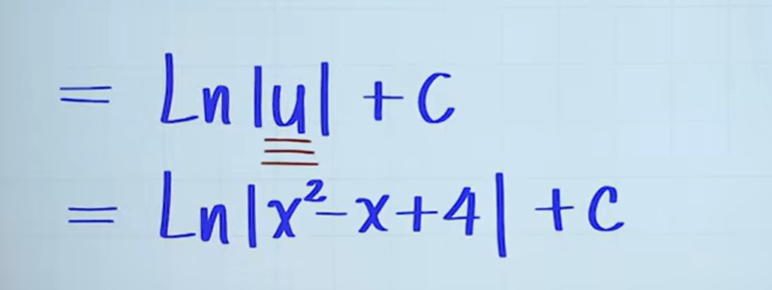 = Ln|u| + C
= Ln|x²-x+4| + C